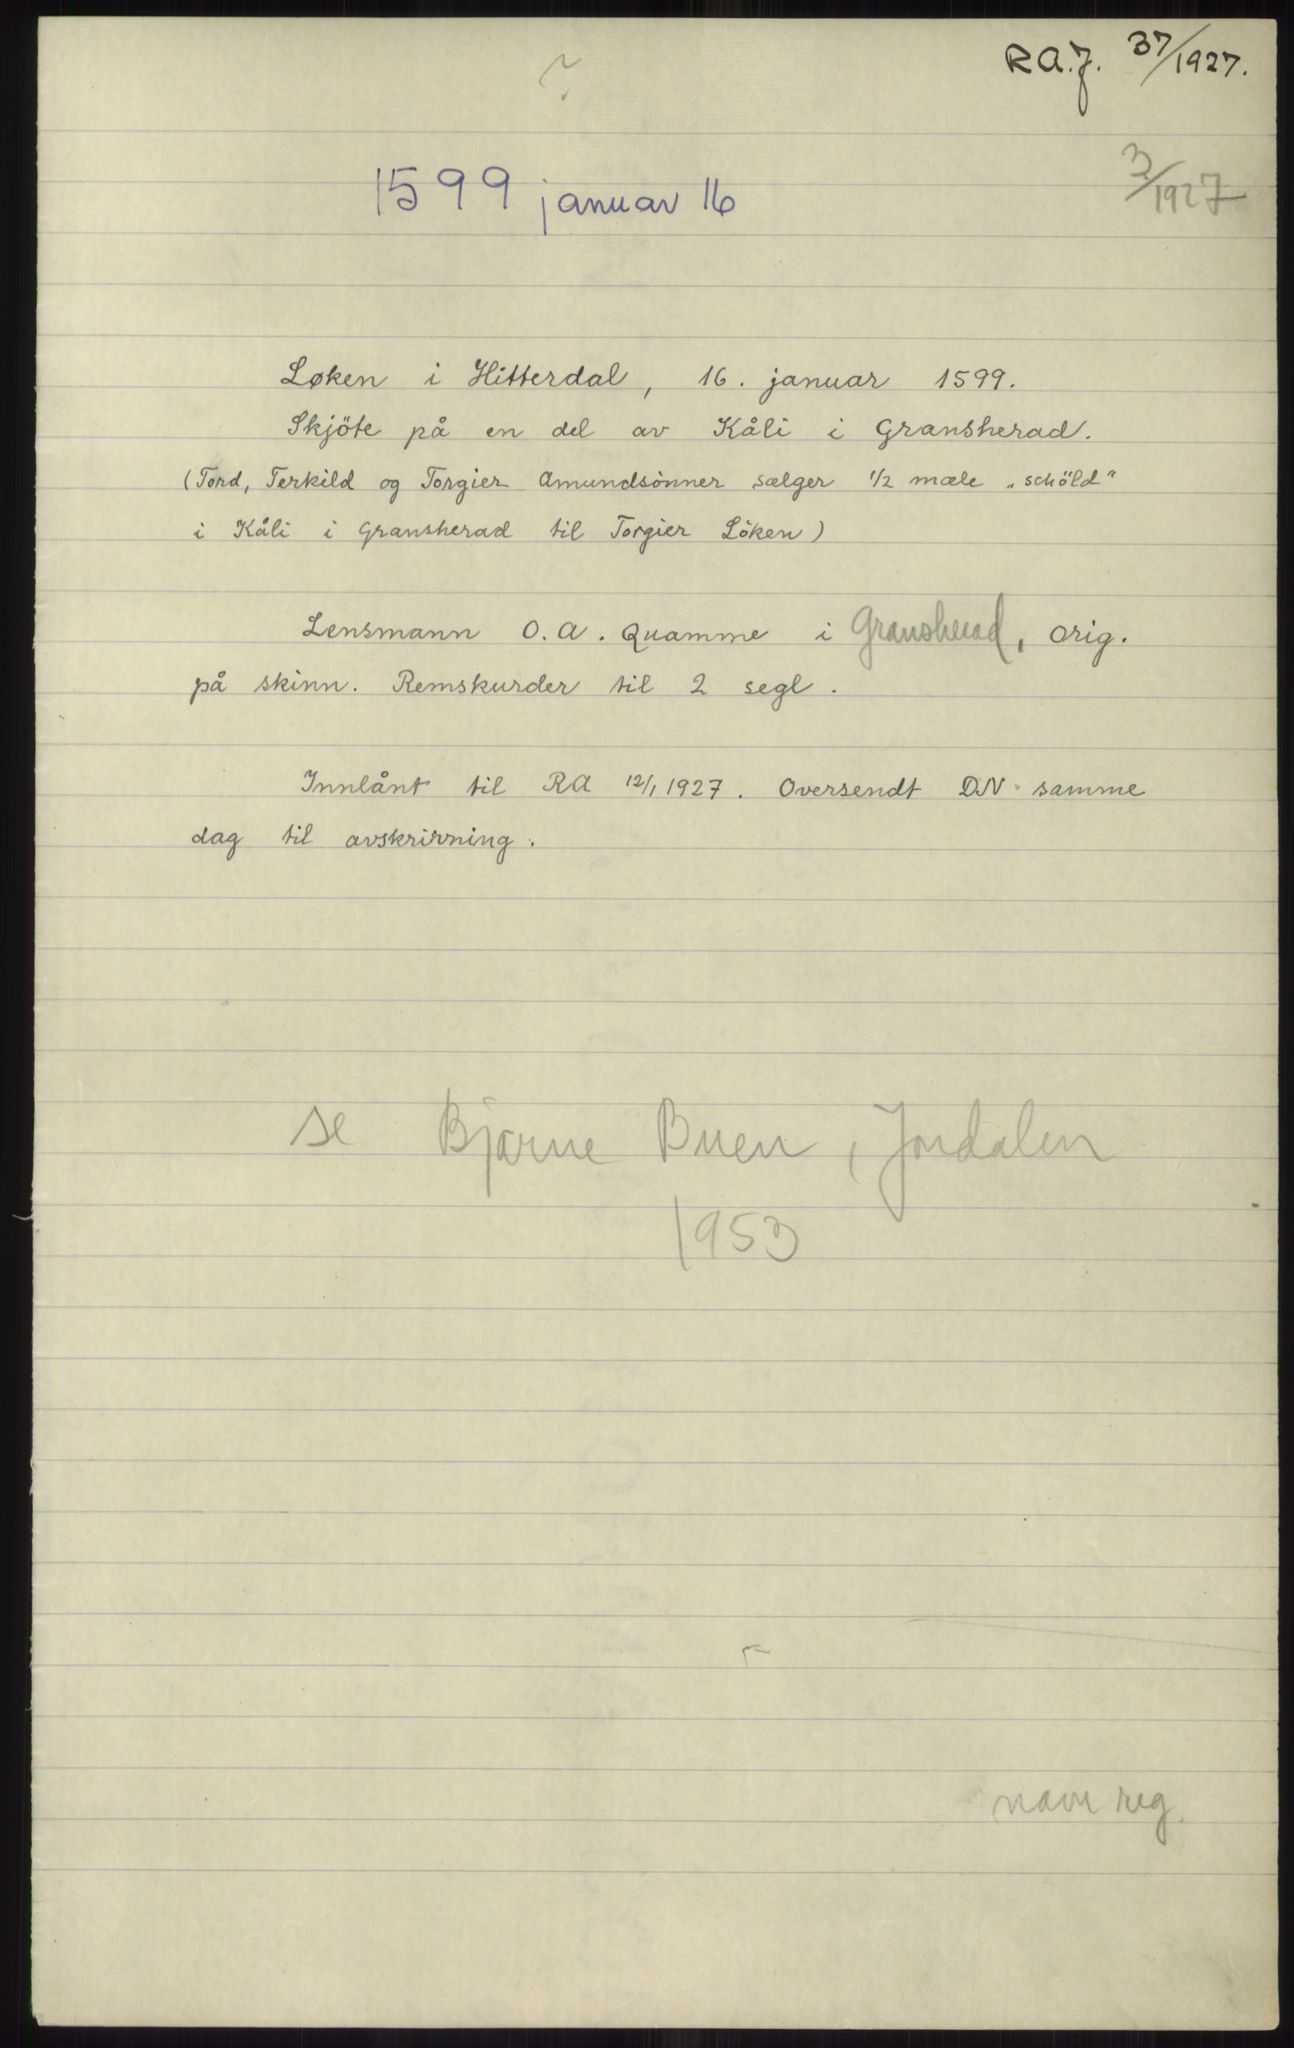 RA.J. 37/1927.
?
3/1927
1599 januar 16
Løken i Hitterdal, 16. januar 1599.
Skjöte på en del av Kåli i Gransherad.
(Tord, Terkild og Torgier Amundsönner sælger 1/2 mæle „schöld"
i Kåli i Gransherad til Torgier Löken)
Lensmann O.A. Quamme i Gransherad, orig.
på skinn. Remskurder til 2 segl.
Innlånt til RA 12/1 1927. Oversendt DN samme
dag til avskrivning.
se Bjarne Buen, Jondalen
1953
navn reg.